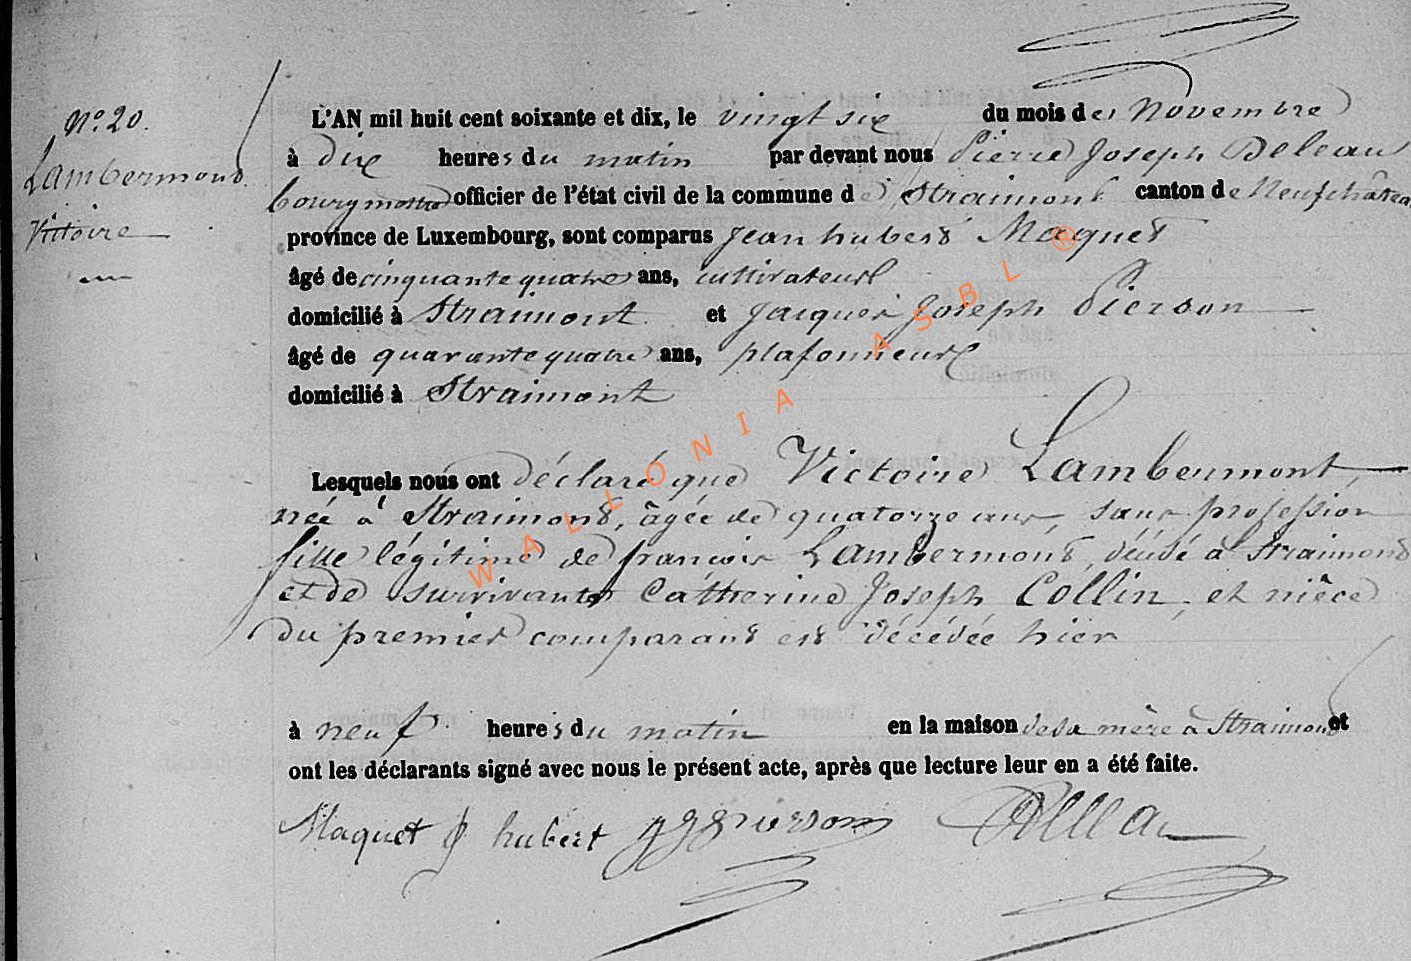 N° 20.
Lambermont
Victoire
L'AN mil huit cent soixante et dix, le vingt six du mois de Novembre
à dix heures du matin par devant nous Pierre Joseph Deleau
bourgmestre officier de l'état civil de la commune de Straimont canton de Neufchâteau
province de Luxembourg, sont comparus Jean hubert Maquet
âgé de cinquante quatre ans, cultivateur
domicilié à Straimont et Jacques Joseph Pierson
âgé de quarante quatre ans, plafonneur
domicilié à Straimont
Lesquels nous ont déclaré que Victoire Lambermont
née à Straimont, âgée de quatorze ans, sans profession
fille légitime de françois Lambermont, décédé à Straimont
et de survivante Catherine Joseph Collin, et nièce
du premier comparant est décédée hier
à neuf heures du matin en la maison de sa mère à Straimont et
ont les déclarants signé avec nous le présent acte, après que lecture leur en a été faite.
Maquet J hubert JJ Pierson Deleau
WALLONIA ASBL ®